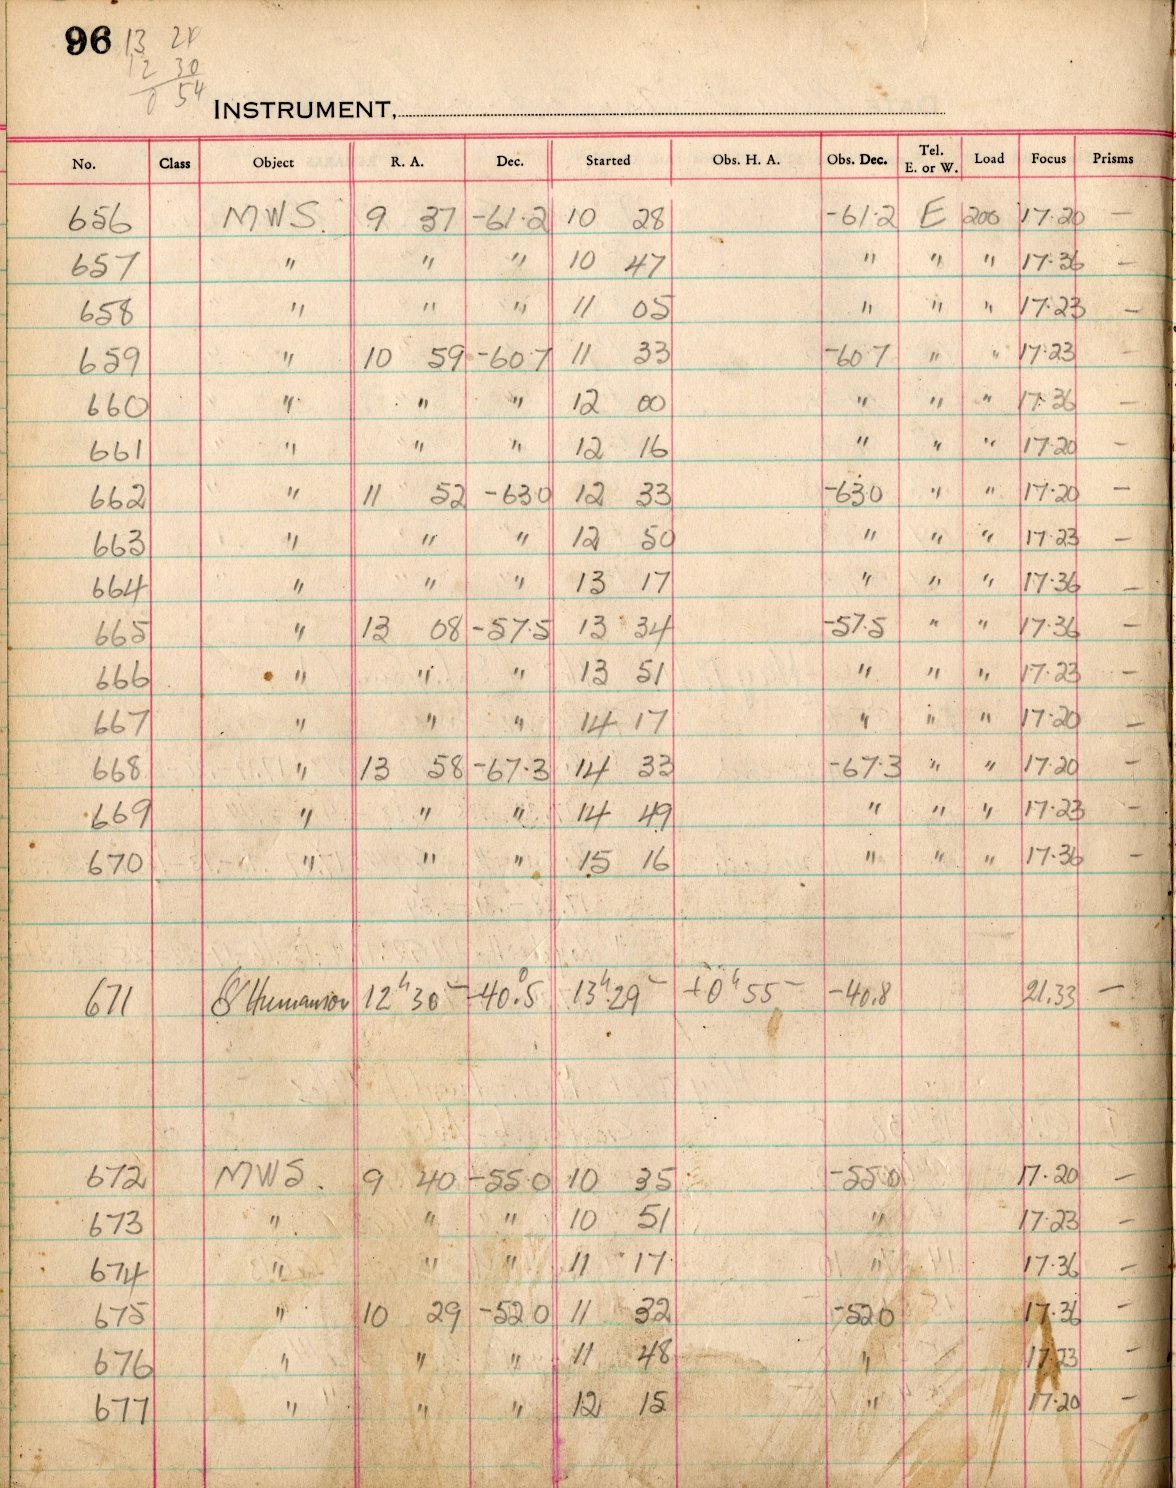 96 13 28
12 30
0 54
INSTRUMENT,
No. Class Object R. A. Dec. Started Obs. H. A. Obs. Dec. Tel. E. or W. Load Focus Prisms
656 MWS. 9 37 -61.2 10 28 -61.2 E 200 17.20 —
657 " " " 10 47 " " " 17.36 —
658 " " " 11 05 " " " 17.23 —
659 " 10 59 -60.7 11 33 -60.7 " " 17.23 —
660 " " " 12 00 " " " 17.36 —
661 " " " 12 16 " " " 17.20 —
662 " 11 52 -63.0 12 33 -63.0 " " 17.20 —
663 " " " 12 50 " " " 17.23 —
664 " " " 13 17 " " " 17.36 —
665 " 13 08 -57.5 13 34 -57.5 " " 17.36 —
666 " " " 13 51 " " " 17.23 —
667 " " " 14 17 " " " 17.20 —
668 " 13 58 -67.3 14 33 -67.3 " " 17.20 —
669 " " " 14 49 " " " 17.23 —
670 " " " 15 16 " " " 17.36 —
671 Humanson 12h 30 -40°.5 13h 29 +0h 55 -40.8 21.33 —
672 MWS. 9 40 -55.0 10 35 -55.0 17.20 —
673 " " " 10 51 " 17.23 —
674 " " " 11 17 " 17.36 —
675 " 10 29 -52.0 11 32 -52.0 17.36 —
676 " " " 11 48 " 17.23 —
677 " " " 12 15 " 17.20 —